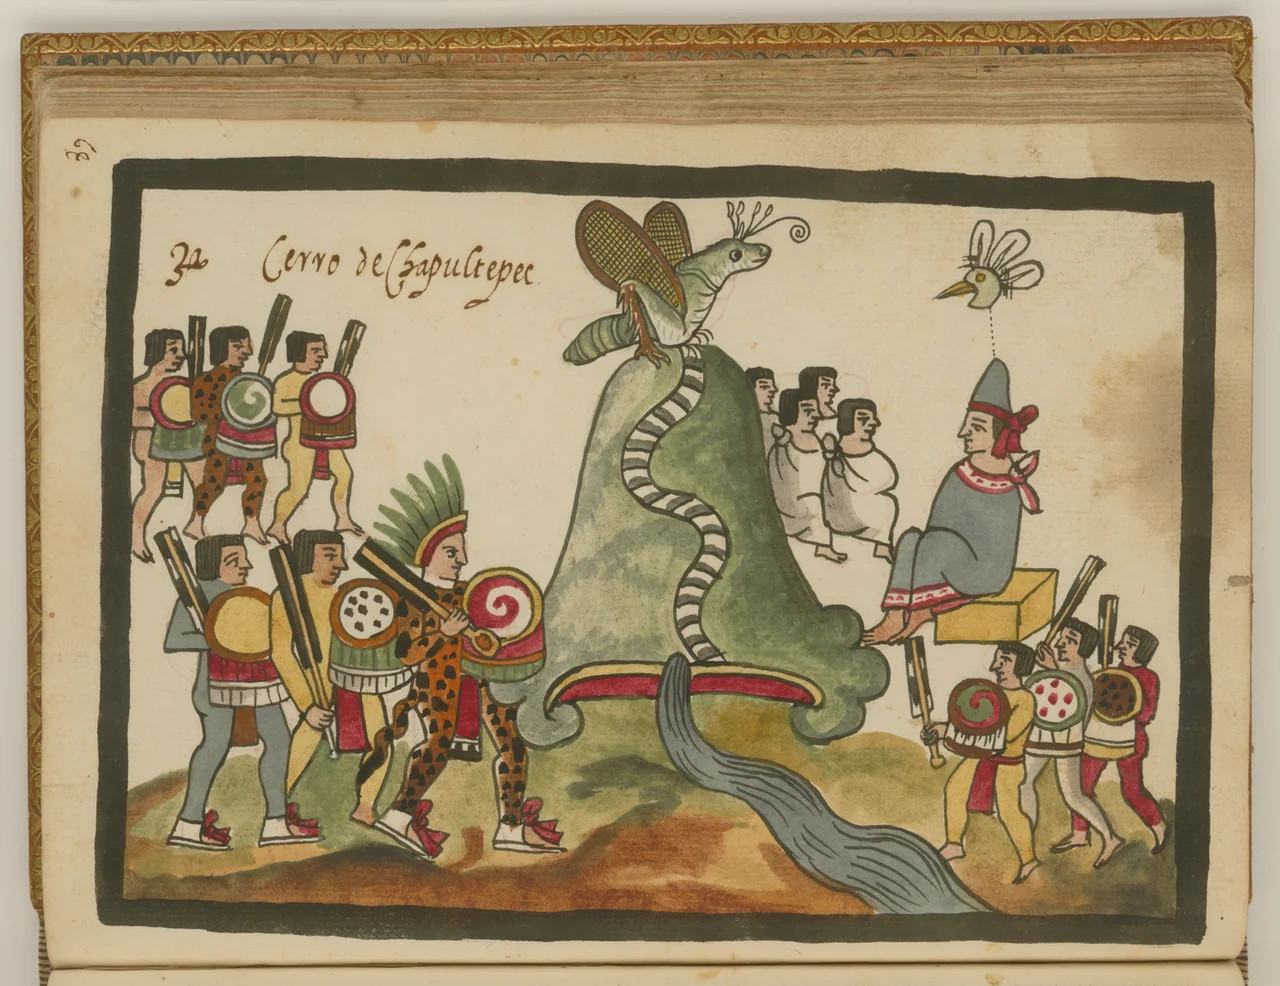 3a Cerro de Chapultepec.